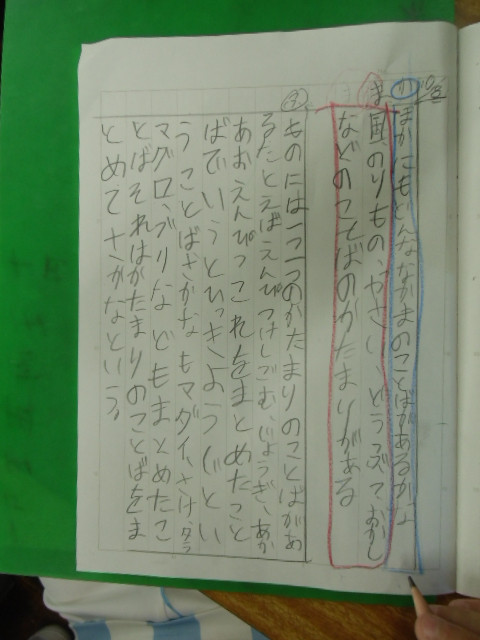 10/3
か ほかにもどんななかまのことばがあるかな
ま 国、のりもの、やさい、どうぶつ、おかし
などのことばのかたまりがある
ものには一つ一つのかたまりのことばがあ
るたとえばえんぴつけしごむ、じょうぎ、あか
あおえんぴつこれをまとめたこと
ばでいうとひっきようぐとい
うことばさかなもマダイ、さけ、タラ
マグロ、ブリなどもまとめたこ
とばそれはかたまりのことばをま
とめてさかなという。